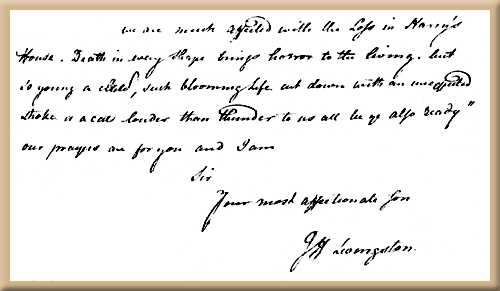 we are much affected with the Loss in Harry's
House. Death in every shape brings horror to the living. but
so young a child, such blooming life cut down with an unexpected
stroke is a call louder than thunder to us all be ye also ready"
our prayers are for you and I am
Sir
Your most affectionate Son
JH Livingston.